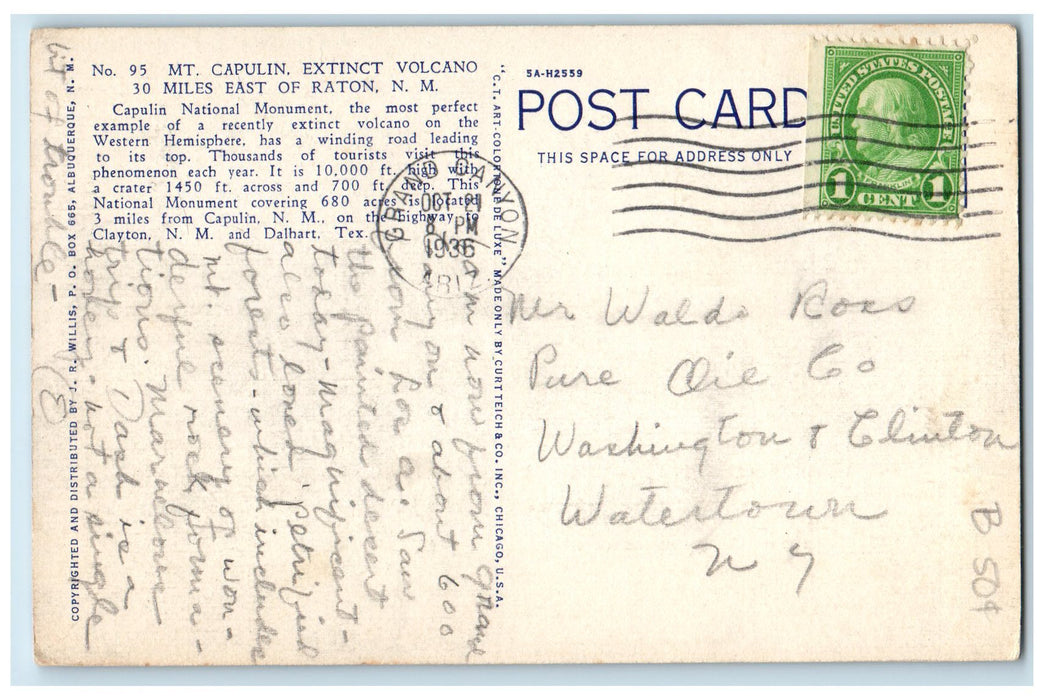 No. 95 MT. CAPULIN, EXTINCT VOLCANO
30 MILES EAST OF RATON, N. M.
Capulin National Monument, the most perfect
example of a recently extinct volcano on the
Western Hemisphere, has a winding road leading
to its top. Thousands of tourists visit this
phenomenon each year. It is 10,000 ft. high with
a crater 1450 ft. across and 700 ft. deep. This
National Monument covering 680 acres is located
3 miles from Capulin, N. M., on the highway to
Clayton, N. M. and Dalhart, Tex.
COPYRIGHTED AND DISTRIBUTED BY J. R. WILLIS, P. O. BOX 665, ALBUQUERQUE, N. M.
"C.T. ART-COLORTONE DE LUXE" MADE ONLY BY CURT TEICH & CO. INC., CHICAGO, U.S.A.
5A-H2559
POST CARD
THIS SPACE FOR ADDRESS ONLY
UNITED STATES POSTAGE
FRANKLIN
1 CENT 1
GRAND CANYON
OCT 21
8 PM
1936
ARIZ.
Am now from Grand
Canyon & about 600
from Los A. Saw
the painted desert
today - magnificent -
also loned petrified
forests - which includes
mt. scenery of won-
derful rock forma-
tions. Marvelous
trip & Dash is a
honey - not a single
bit of trouble -
(8)
Mr Waldo Ross
Pure Oil Co
Washington & Clinton
Watertown
N Y
B 50¢